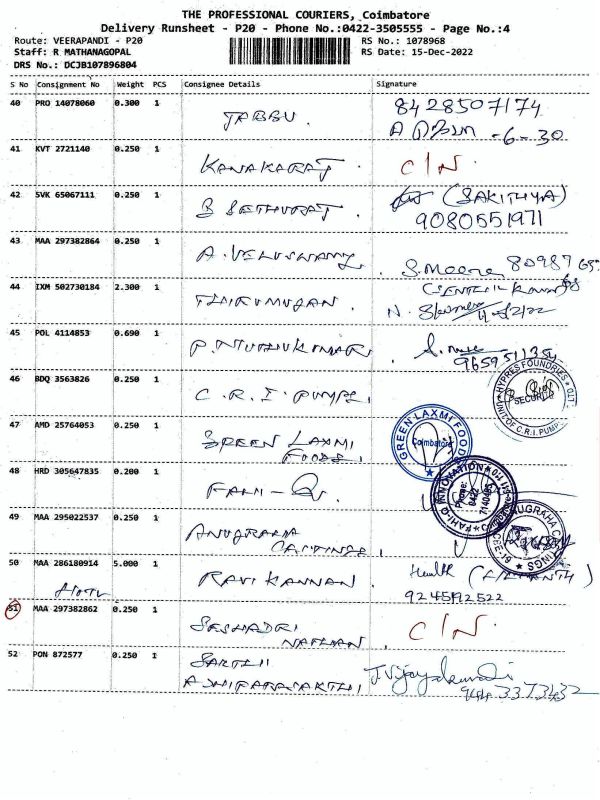 THE PROFESSIONAL COURIERS, Coimbatore
Delivery Runsheet - P20 - Phone No.:0422-3505555 - Page No.:4
Route: VEERAPANDI - P20
RS No.: 1078968
Staff: R MATHANAGOPAL
RS Date: 15-Dec-2022
DRS No.: DCJB107896804
S No Consignment No Weight PCS Consignee Details Signature
40 PRO 14078060 0.300 1 JABBU. 8428507174
-6-30
41 KVT 2721140 0.250 1 KANAKARAJ. C/N
42 SVK 65067111 0.250 1 B SETHURAJ. (SAKITHYA)
9080551971
43 MAA 297382864 0.250 1 A. VELUSWAMY. S. Meena 80987
44 IXM 502730184 2.300 1 THIRUMUGAN.
N.
45 POL 4114853 0.690 1 P. MUTHUKUMAR.
9659511354
46 BDQ 3563826 0.250 1 C. R. I. PUMPS.
HYPRES FOUNDRIES
SECURITY
UNIT OF C.R.I. PUMP
47 AMD 25764053 0.250 1 GREEN LAXMI
FOODS.
GREEN LAXMI FOODS
Coimbatore
48 HRD 305647835 0.200 1 FAHI-Q.
FAHI-Q INNOVATION
Phone:
0422
49 MAA 295022537 0.250 1 ANUGRAHA
CASTINGS.
50 MAA 286180914 5.000 1 RAVI KANNAN.
9245192522
51 MAA 297382862 0.250 1 SESHADRI
NATHAN. C/N
52 PON 872577 0.250 1 SAKTHI
ADHIPARASAKTHI J. Vijayakumari